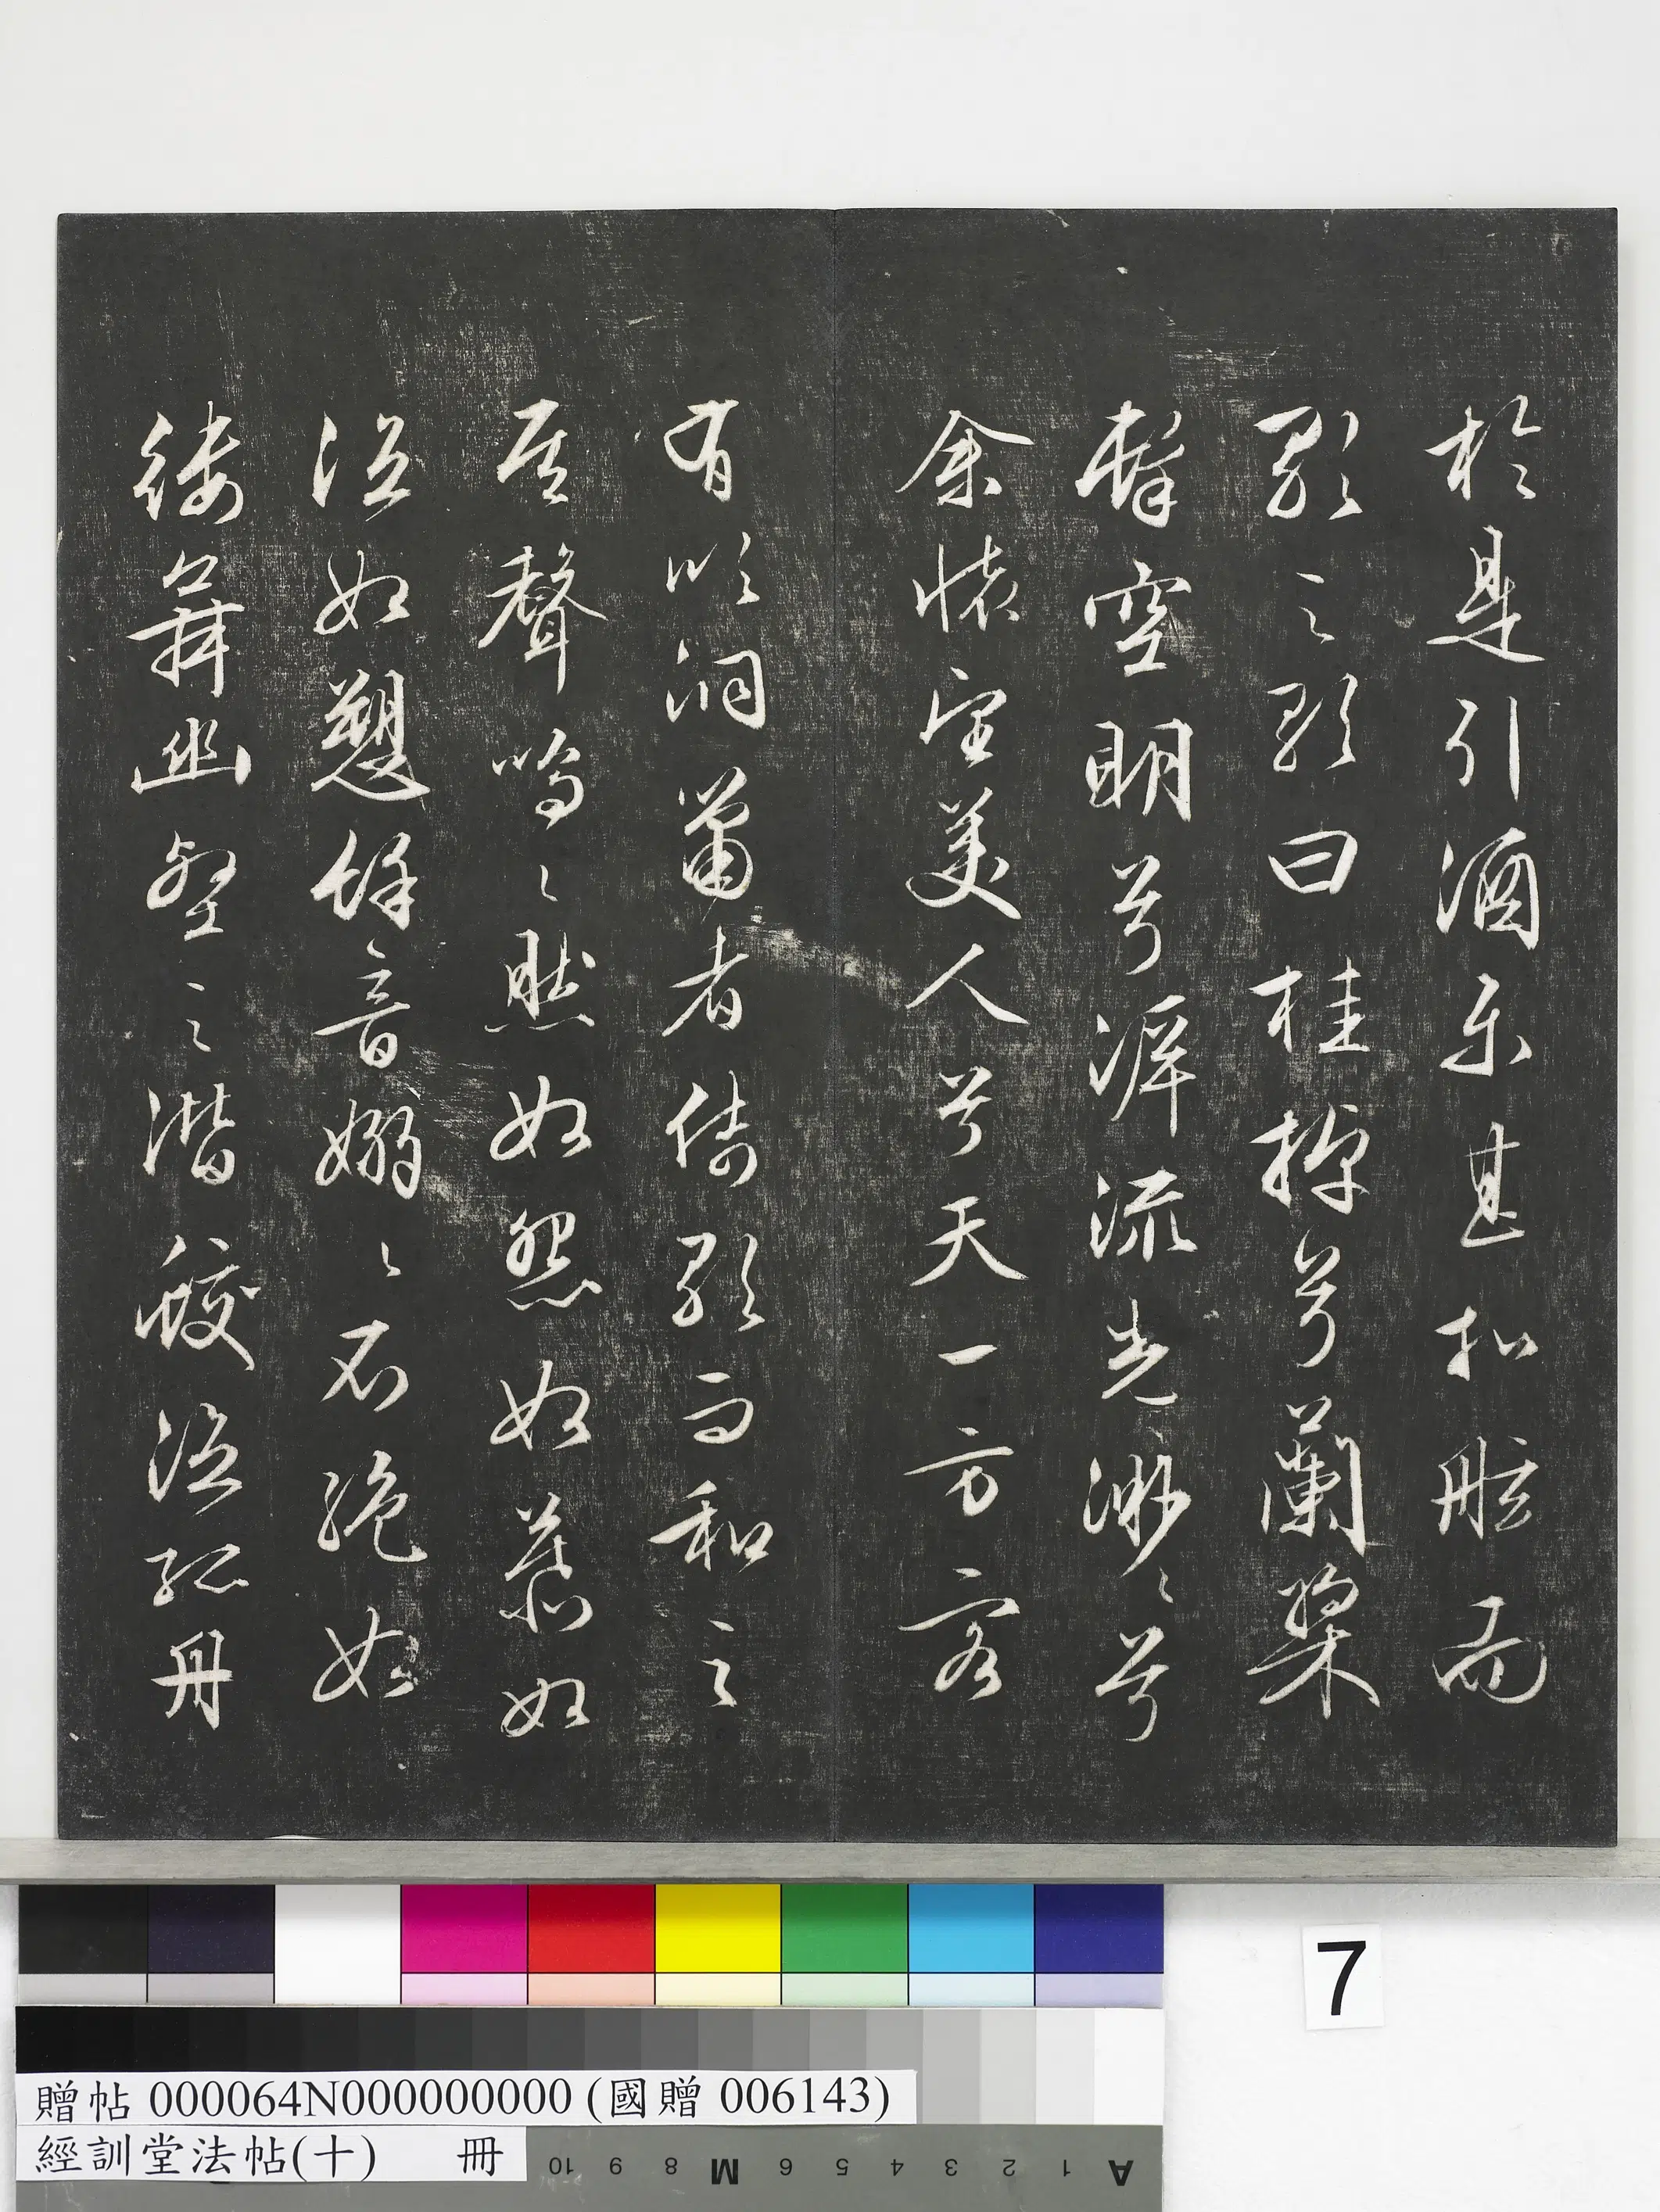 於是引酒樂甚扣舷而
歌之歌曰桂棹兮蘭槳
擊空明兮泝流光渺々兮
余懷望美人兮天一方客
有吹洞簫者倚歌而和之
其聲嗚々然如怨如慕如
泣如愬餘音嫋々不絕如
縷舞幽壑之潛蛟泣孤舟
7
贈帖 000064N000000000 (國贈 006143)
經訓堂法帖(十) 冊
10 9 8 M 7 6 5 4 3 2 1 A